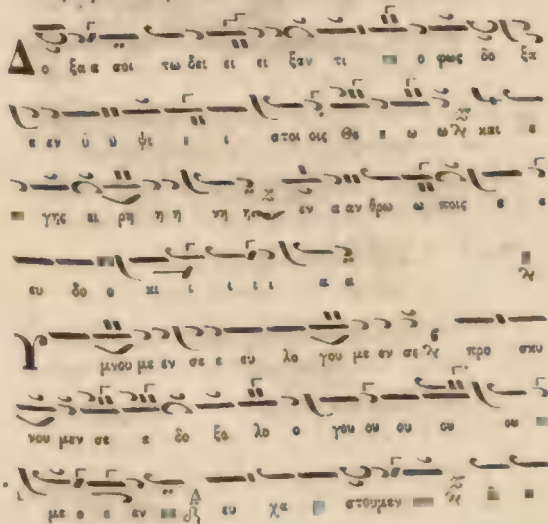 Δο ξα α σοι τω δει ει ει ξαν τι ο φως δο ξα
ε εν υ υ ψι ι ι ι στοι οις Θε ε ω ω και ε
γης ει ρη η η νη η εν α αν θρω ω ποις ε
ευ δο ο κι ι ι ι ι α α
Υ μνου με εν σε ε ευ λο γου με εν σε προ σκυ
νου μεν σε ε δο ξο λο ο γου ου ου ου ου
με ε ε εν ευ χα στουμεν